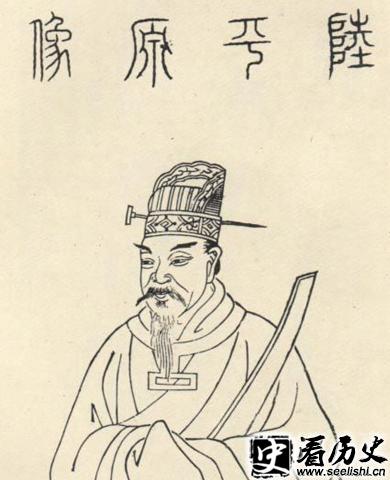 陸平原像
史看历史
www.seelishi.cn